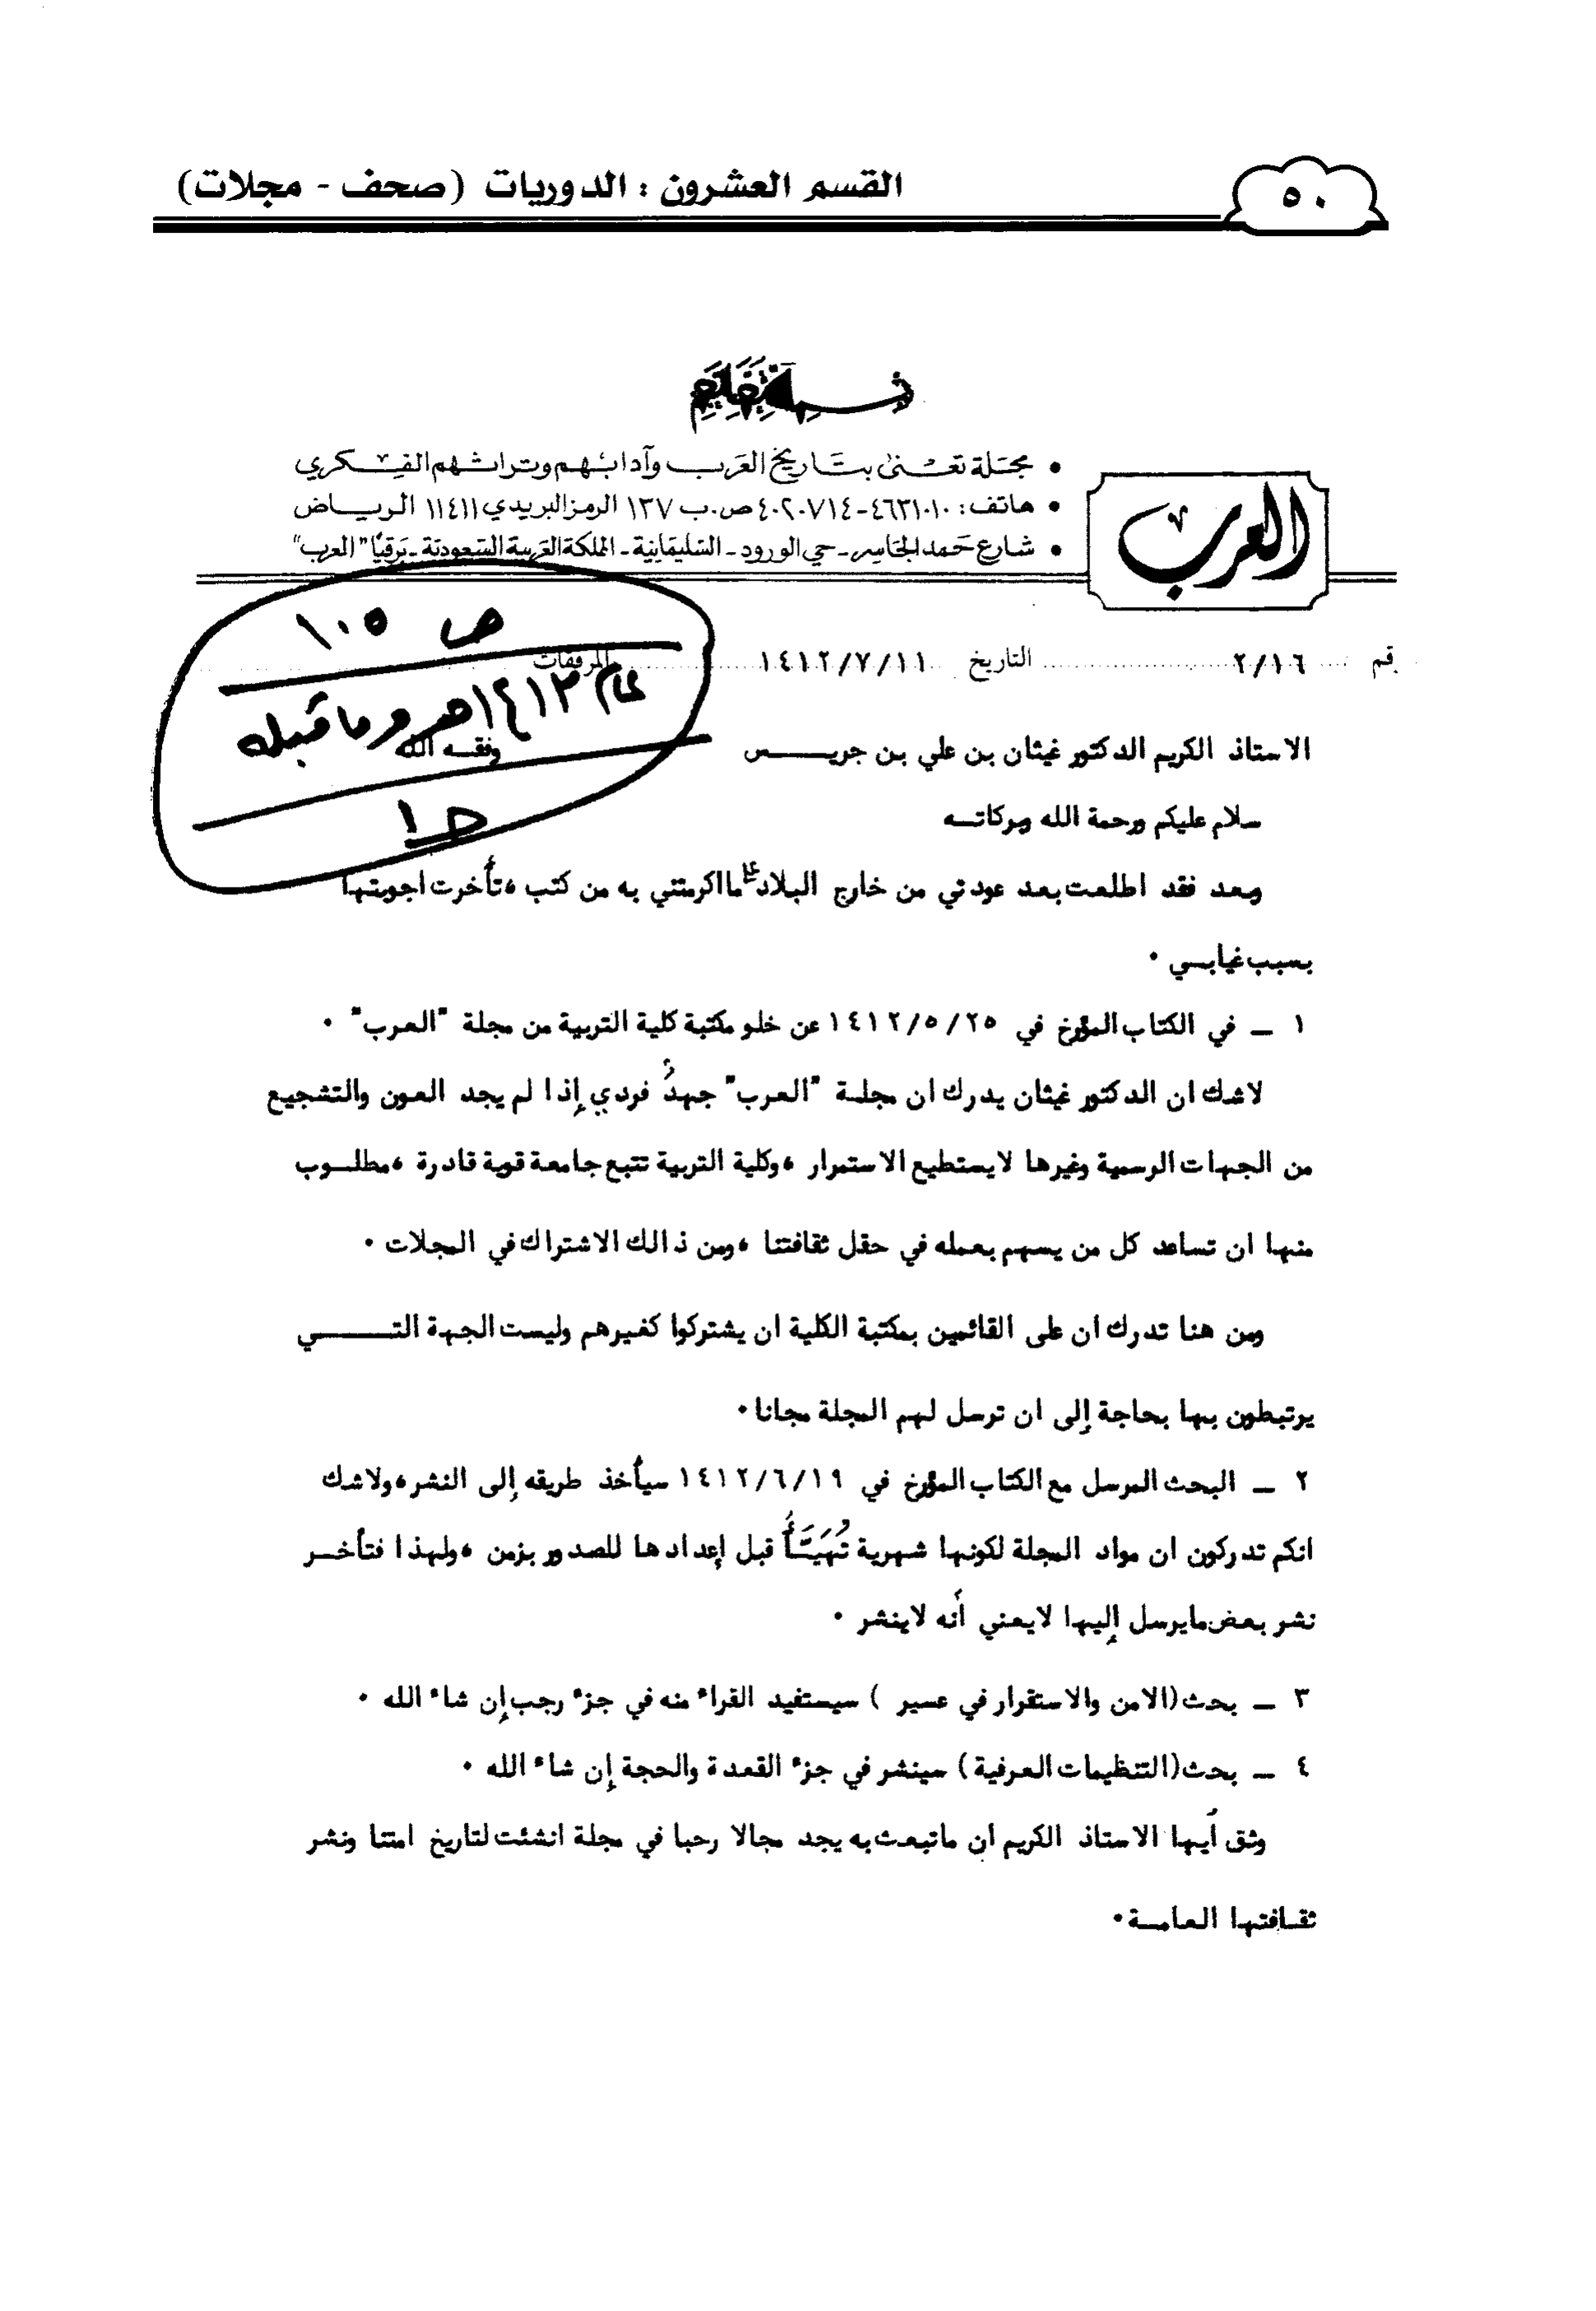 القسم العشرون : الدوريات (صحف - مجلات)
٥٠
• مجلة تعنى بتاريخ العرب وآدابهم وتراثهم الفكري
• هاتف: ٤٦٣١٠١٠-٤٠٢٠٧١٤ ص.ب ١٣٧ الرمز البريدي ١١٤١١ الرياض
• شارع حمد الجاسر - حي الورود - السليمانية - المملكة العربية السعودية - برقيًا "العرب"
العرب
ص ١٠٥
رقم ٢/١٦ التاريخ ١٤١٢/٧/١١ المرفقات
عام ١٤١٢هـ وما قبله
الاستاذ الكريم الدكتور غيثان بن علي بن جريـــس وفقـه الله
سلام عليكم ورحمة الله وبركاتـه
ج١
وبعد فقد اطلعت بعد عودتي من خارج البلاد على ما اكرمتني به من كتب ، تأخرت اجوبتها
بسبب غيابـي .
١ ـ في الكتاب المؤرخ في ١٤١٢/٥/٢٥ عن خلو مكتبة كلية التربية من مجلة "العرب" .
لاشك ان الدكتور غيثان يدرك ان مجلـة "العرب" جهدُ فردي إذا لم يجد العون والتشجيع
من الجهات الرسمية وغيرها لايستطيع الاستمرار ، وكلية التربية تتبع جامعة قوية قادرة ، مطلـوب
منها ان تساعد كل من يسهم بعمله في حقل ثقافتنا ، ومن ذالك الاشتراك في المجلات .
ومن هنا تدرك ان على القائمين بمكتبة الكلية ان يشتركوا كغيرهم وليست الجهة التـــــي
يرتبطون بها بحاجة إلى ان ترسل لهم المجلة مجانا .
٢ ـ البحث المرسل مع الكتاب المؤرخ في ١٤١٢/٦/١٩ سيأخذ طريقه إلى النشر ، ولاشك
انكم تدركون ان مواد المجلة لكونها شهرية تُهَيَّـأُ قبل إعدادها للصدور بزمن ، ولهذا فتأخـر
نشر بعض مايرسل إليها لايعني أنه لاينشر .
٣ ـ بحث (الامن والاستقرار في عسير ) سيستفيد القراء منه في جزء رجب إن شاء الله .
٤ ـ بحث (التنظيمات العرفية) سينشر في جزء القعدة والحجة إن شاء الله .
وثق أيها الاستاذ الكريم ان ماتبعث به يجد مجالا رحبا في مجلة انشئت لتاريخ امتنا ونشر
ثقـافتها العامـة .